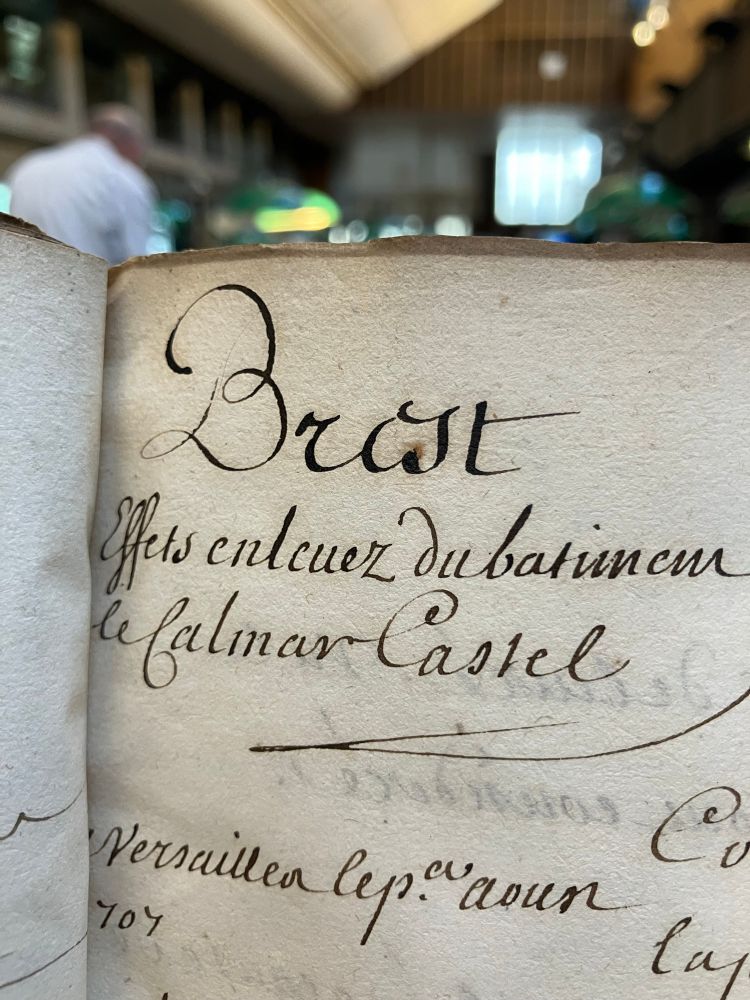 Brest
Effets enleuez du batiment
le Calmar Castel
Versailles le p.er aoust
707